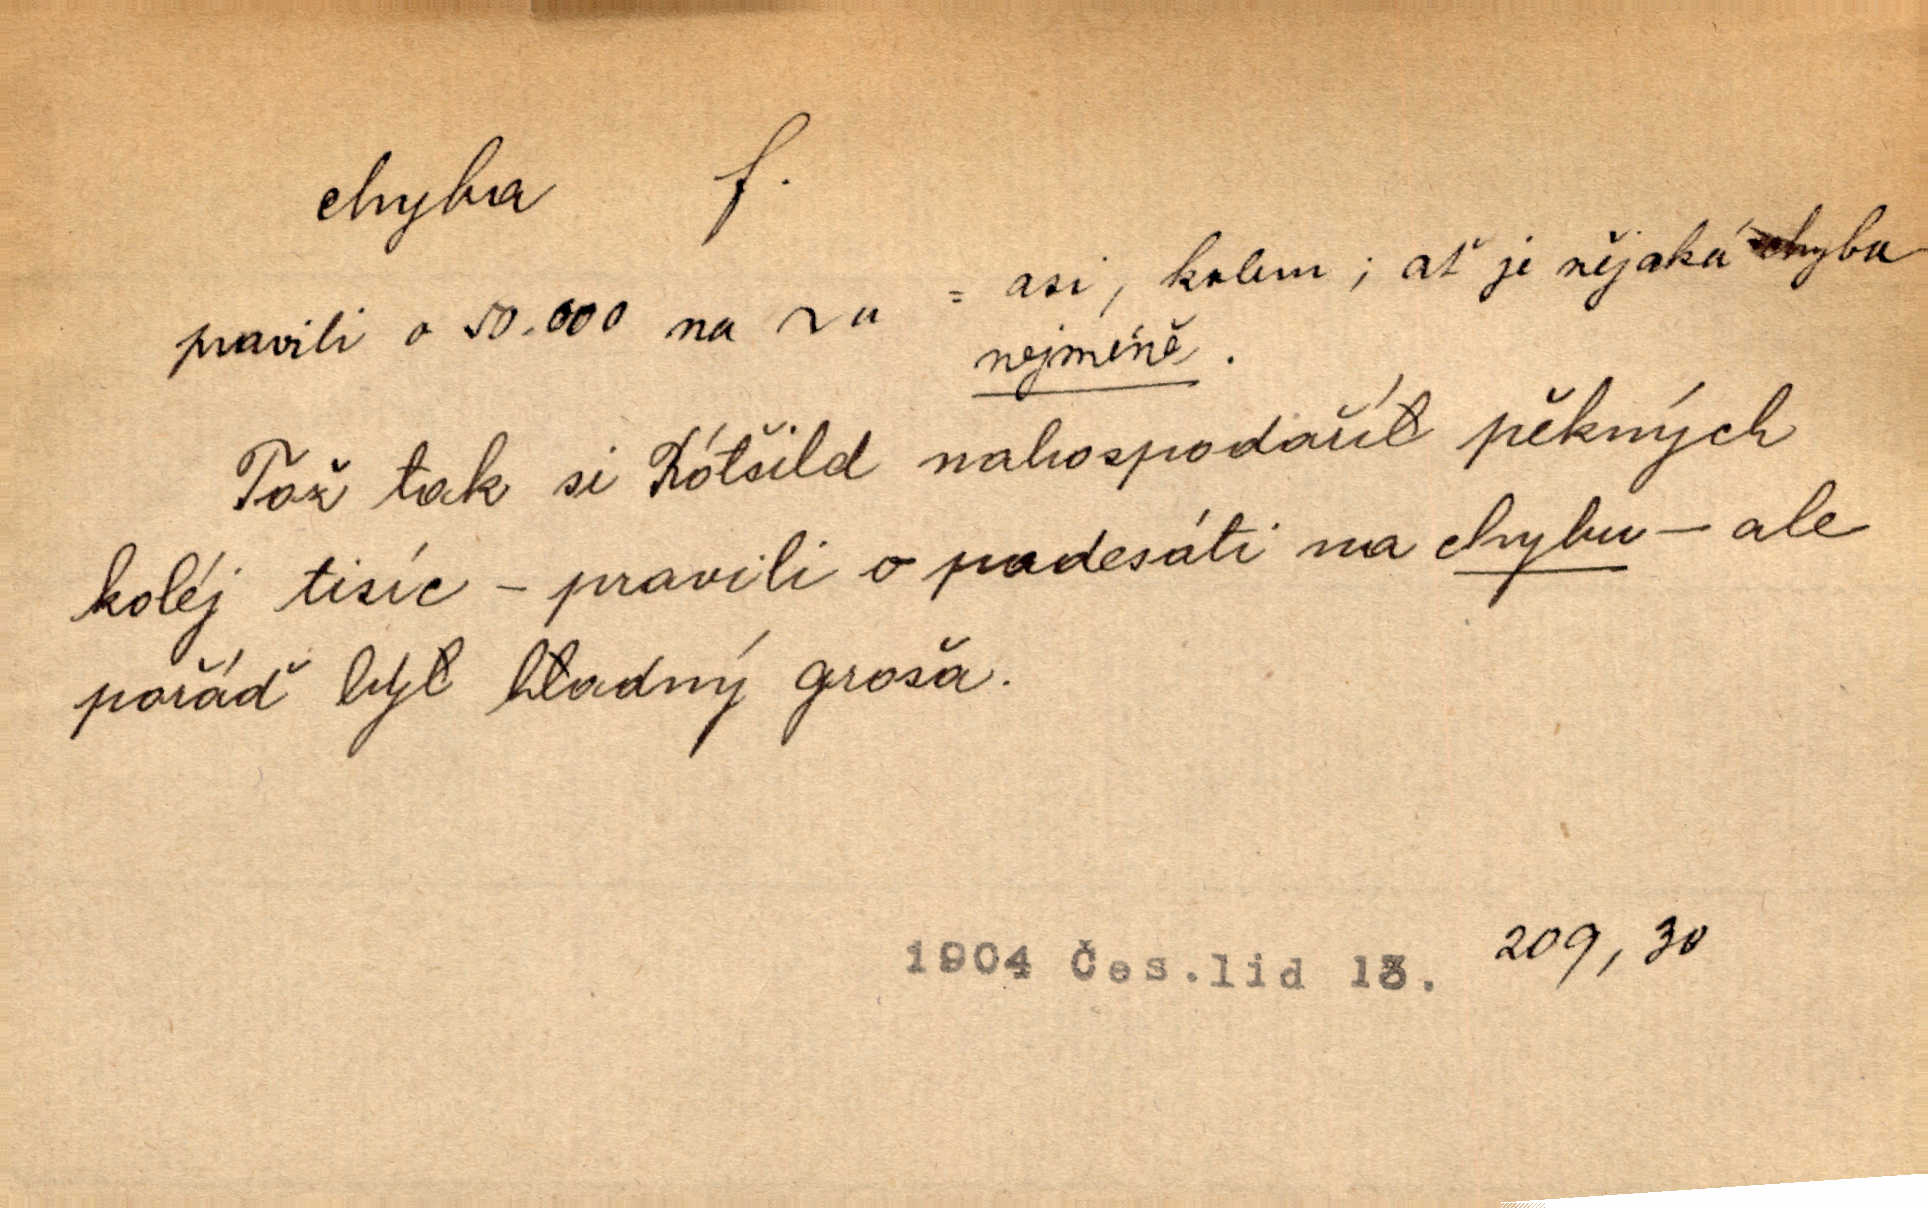 chyba f.
pravili o 50.000 na ~u = asi, kolem; ať je nějaká chyba
nejméně.
Tož tak si Rótšild nahospodařił pěkných
koléj tisíc – pravili o padesáti na chybu – ale
pořáď był hładný groša.
1904 Čes.lid 13. 209, 30